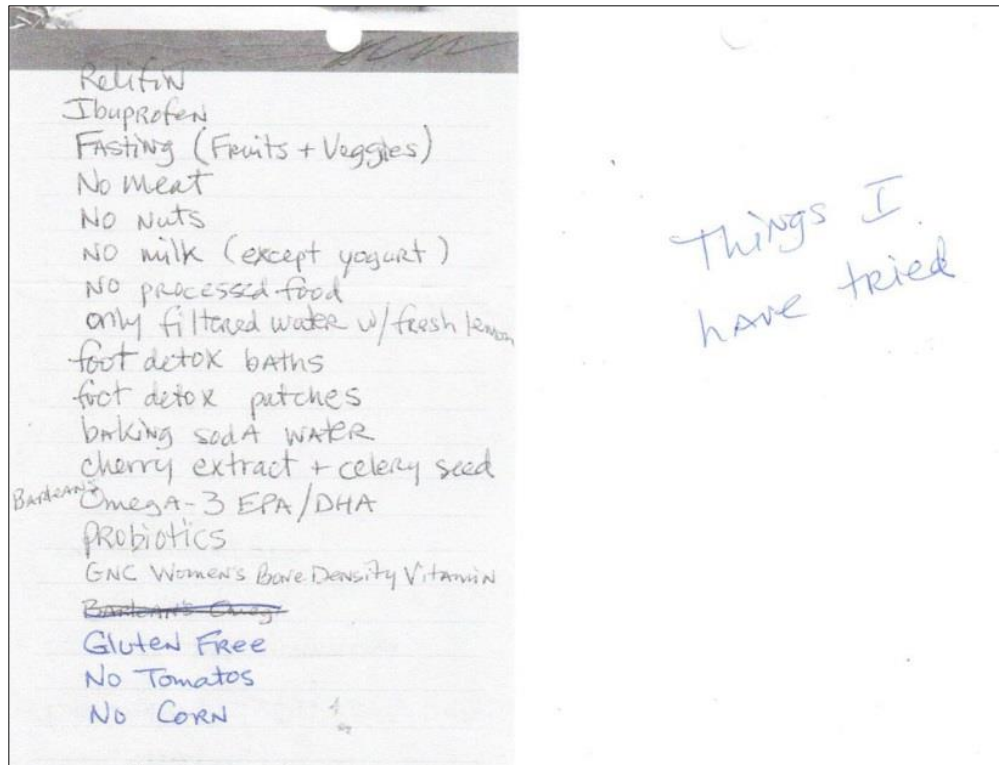 Relifin
Ibuprofen
Fasting (Fruits + Veggies)
No meat
No Nuts
No milk (except yogurt)
No processed food
only filtered water w/ fresh lemon
foot detox baths
foot detox patches
baking soda water
cherry extract + celery seed
Barlean's Omega-3 EPA/DHA
Probiotics
GNC Women's Bone Density Vitamin
Barlean's Omeg
Gluten Free
No Tomatos
No Corn
Things I
have tried